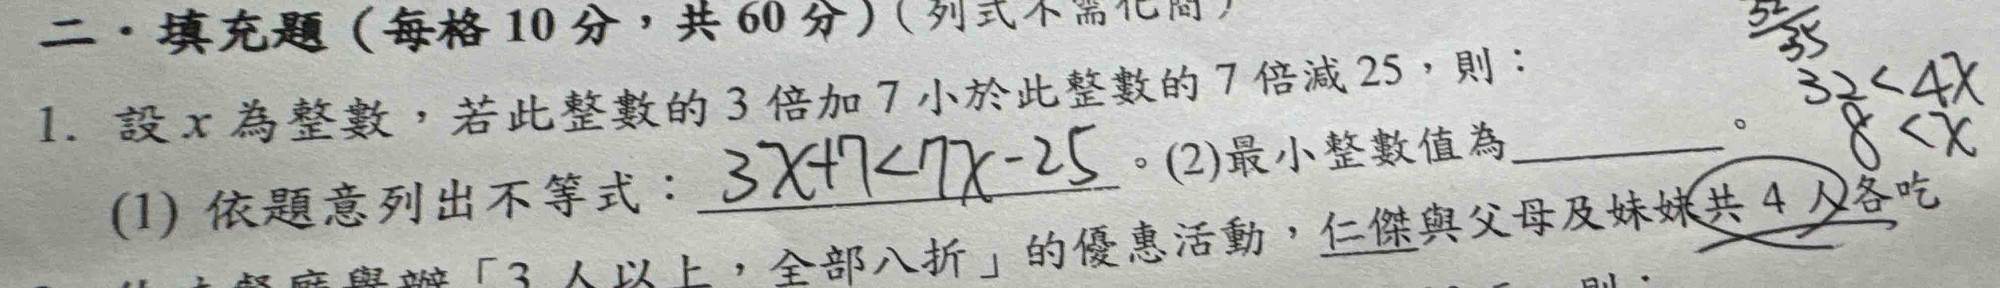 二・填充題（每格 10 分，共 60 分）（列式不需化簡）
32
35
1. 設 x 為整數，若此整數的 3 倍加 7 小於此整數的 7 倍減 25，則：
32<4x
8<x
(1) 依題意列出不等式：3x+7<7x-25。(2)最小整數值為＿＿＿＿。
「3 人以上，全部八折」的優惠活動，仁傑與父母及妹妹共 4 人各吃
則：